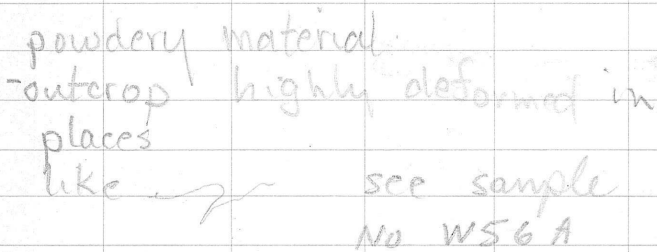 powdery material.
-outcrop highly deformed in
places
like see sample
No W56A